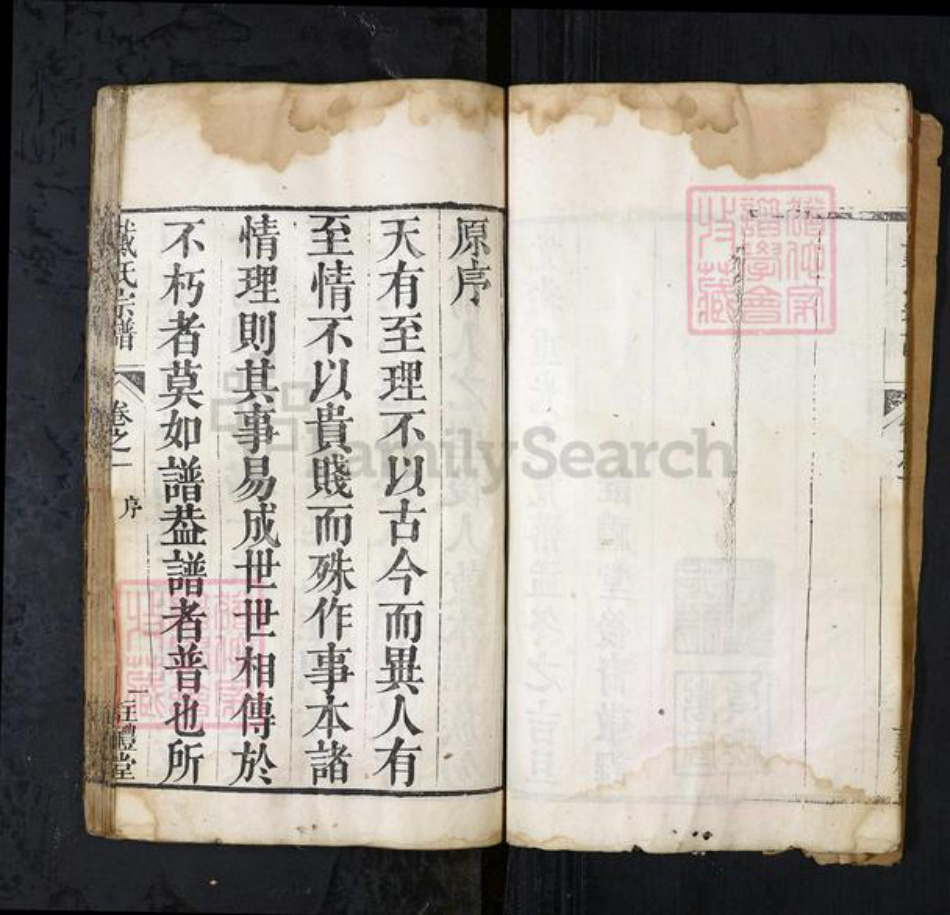 原序
天有至理不以古今而異人有
至情不以貴賤而殊作事本諸
情理則其事易成世世相傳於
不朽者莫如譜葢譜者普也所
戴氏宗譜
卷之一
序
一
注禮堂
FamilySearch